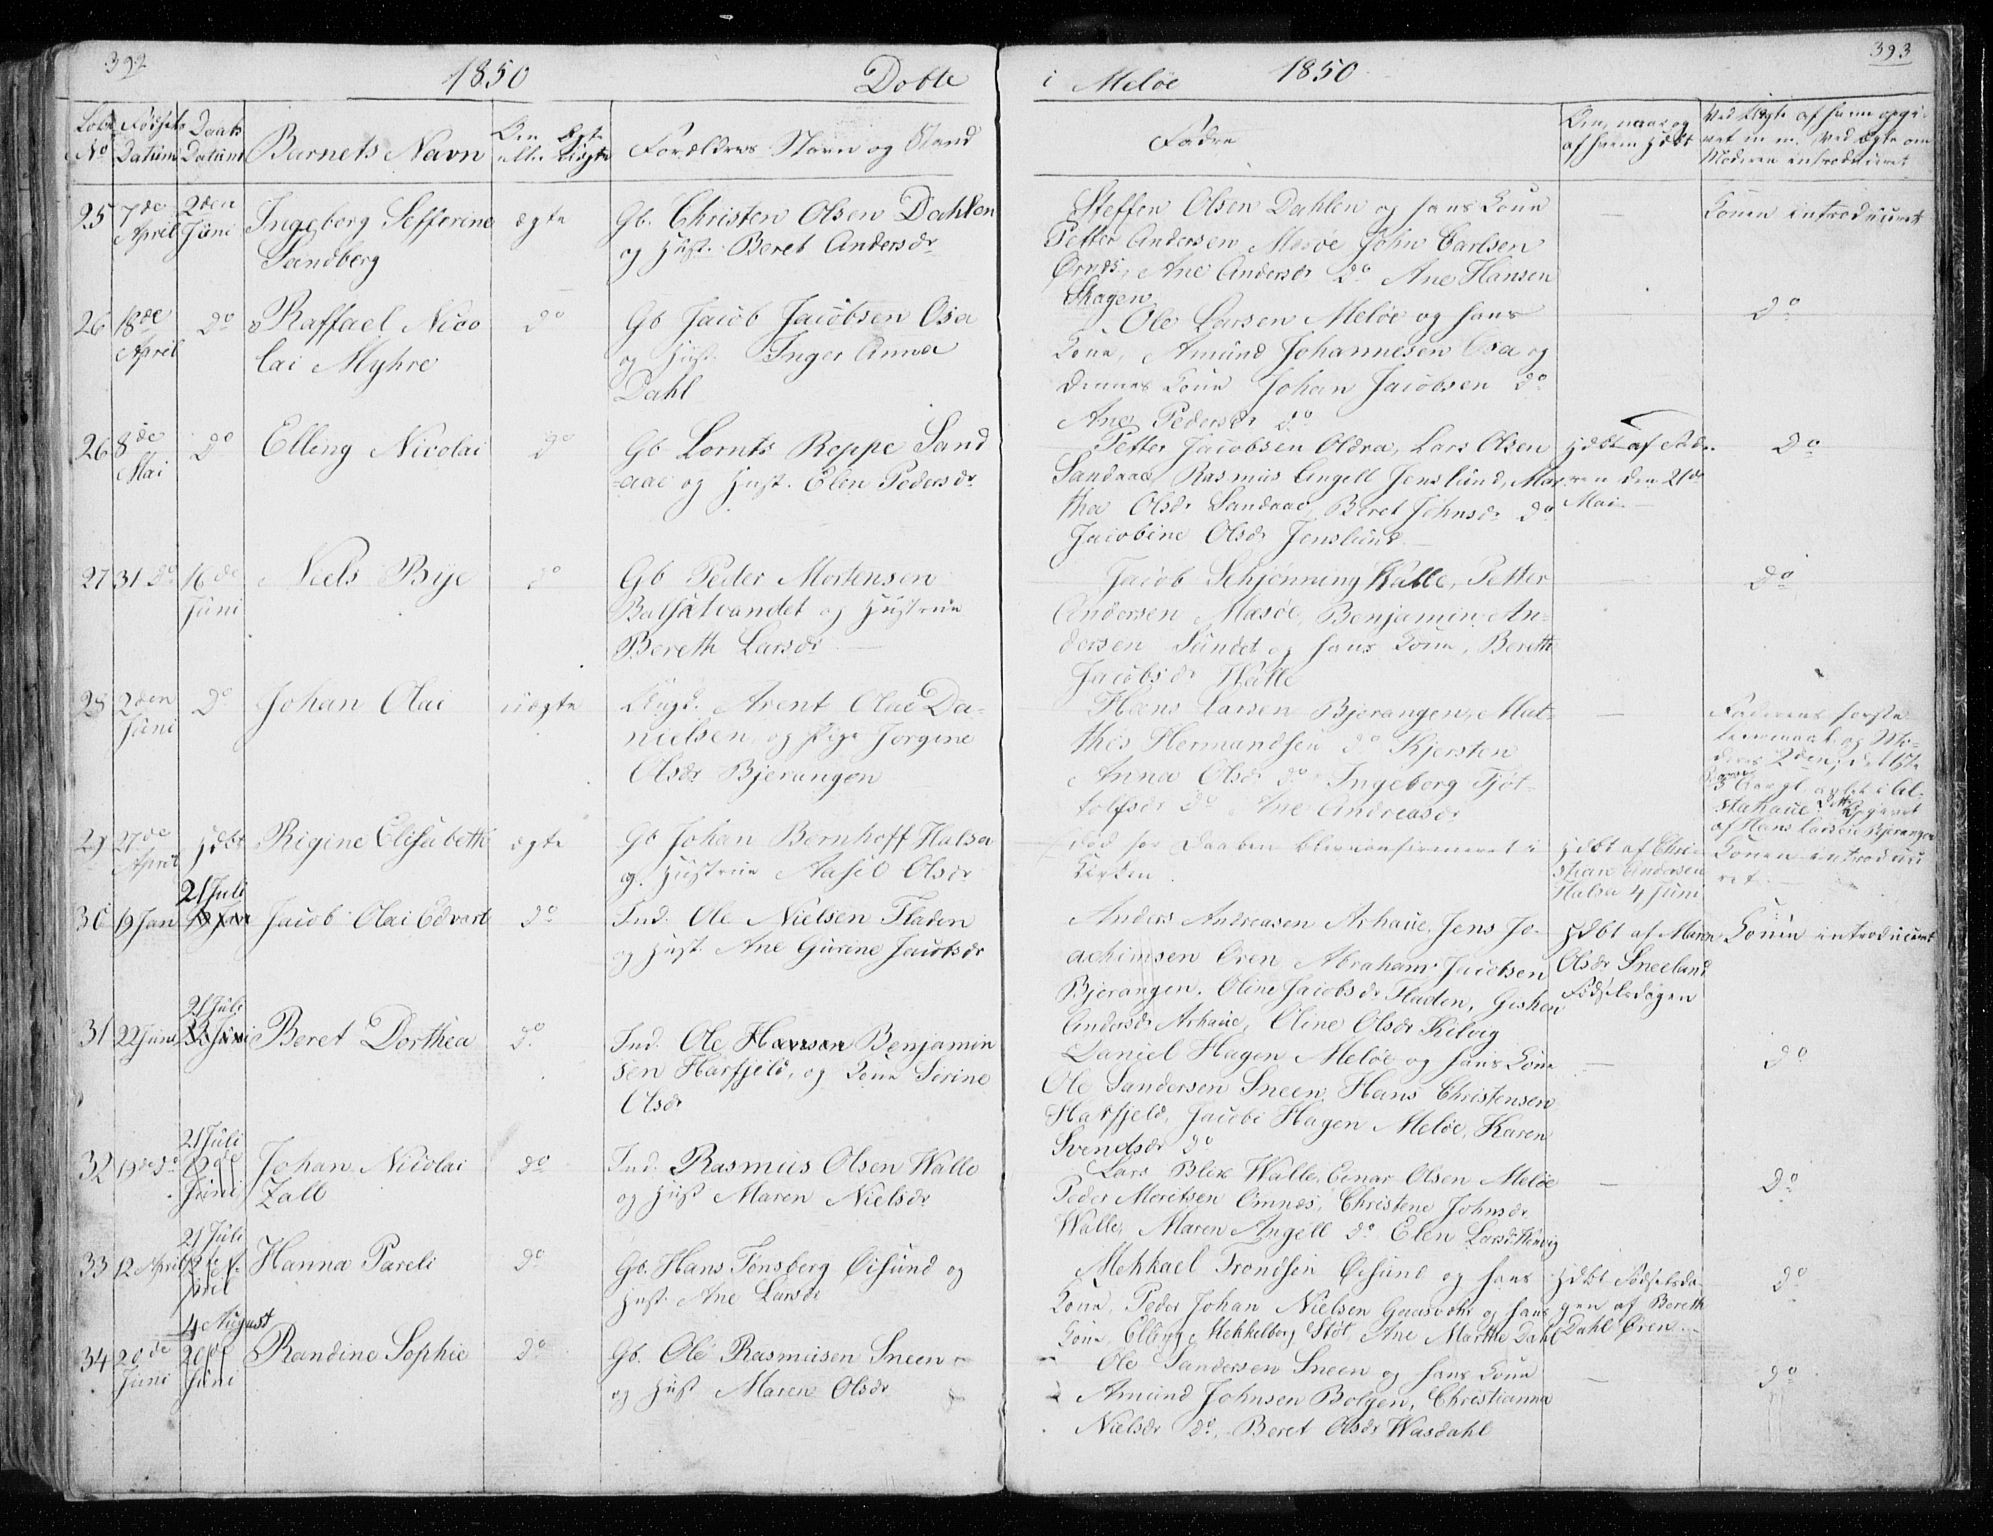 392
1850
Døbte
Løbe No
Fødsels Datum
Daabs Datum
Barnets Navn
Om Ægte eller Uægte
Forældres Navn og Stand
25
7de April
2den Juni
Ingeborg Sefferine
Sandberg
ægte
Gb. Christen Olsen Dahlen
og Hust. Beret Andersdr
26
18de April
do
Raffael Nico
lai Myhre
do
Gb Jacob Jacobsen Osa
og Hust. Inger Anna
Dahl
26
8de Mai
do
Elling Nicolai
do
Gb Lornts Reppe Sand
-aae og Hust. Elen Pedersdr
27
31 do
16de Juni
Niels Bye
do
Gb Peder Mortensen
Balsatvandet og Hustrue
Bereth Larsdr
28
2den Juni
do
Johan Olai
uægte
Ungk. Arent Olai Da-
nielsen og Pige Jørgine
Olsdr Bjerangen
29
27de April
hdbt
Rigine Elisabeth
ægte
Gb Johan Bernhoff Halsa
og Hustrue Aasel Olsdr
30
19 Jan
21 Juli
Jacob Olai Edvart
do
Ind. Ole Nielsen Fladen
og Hust Ane Gurine Jacobsdr
31
22 Juni
21 Juli
Beret Dorthea
do
Ind. Ole Hansen Benjamin
sen Harfjeld, og Kone Sirine
Olsdr
32
19de do
21 Juli
19de Juni
Johan Nicolai
Zall
do
Ind. Rasmus Olsen Walle
og Hust Maren Nielsdr
33
12 April
21 Juli
Hanna Pareli
do
Gb. Hans Tønsberg Øisund og
Hust. Ane Larsdr
34
20de Juni
4 August
20de Juni
Randine Sophie
do
Gb. Ole Rasmusen Sneen
og Hust Maren Olsdr
393
i Meløe
1850
Fadre
Om, naar og
af hvem hdbt
Ved Uægte af hvem opgi-
vet m. m. Ved Ægte om
Moderen introduceret
Steffen Olsen Dahlen og hans Kone
Petter Andersen Mesøe John Carlsen
Ørnes, Ane Andersdr do Ane Hansen
Skagen
Konen introduceret
Ole Larsen Meløe og hans
Kone, Amund Johannesen Osa og
dennes Kone Johan Jacobsen do
Ane Pedersdr do
do
Petter Jacobsen Oldra, Lars Olsen
Sandaae, Rasmus Angell Jenslund, Mar
tha Olsdr Sandaae, Beret Johnsdr do
Jacobine Olsdr Jenslund
hdbt af Fade-
ren den 21de
Mai
do
Jacob Schjønning Walle, Petter
Andersen Mesøe, Benjamin An-
dersen Sundet og hans Kone, Bereth
Jacobsdr Walle
do
Hans Larsen Bjerangen, Mat-
this Hermandsen do Kjersten
Anna Olsdr do Ingeborg Tjøt-
tolfsdr do Ane Andreasdr
Faderens første
Leiermaal og Mo-
deres 2den,
af Hans Larsen Bjerangen
død før Daaben blev confirmeret i
Kirken.
hdbt af Chri-
stian Andersen
Halsa 4 Juni
Konen introduce
ret
Anders Andreasen Arhaue, Jens Jo-
achimsen Øren Abraham Jacobsen
Bjerangen. Oline Jacobsdr Fladen, Gjshen
Andersdr Arhaue, Oline Olsdr Kilvig
hdbt af Maren
Olsdr Sneeland
Fødselsdagen
Konen introduceret
Daniel Hagen Meløe og hans Kone
Ole Sandersen Sneen, Hans Christensen
Harfjeld, Jacobe Hagen Meløe, Karen
Svendsdr do
do
Lars Blix Walle, Einar Olsen Meløe
Peder Moritsen Ømnes, Christene Johnsdr
Walle, Maren Angell do Elen Larsdr
do
Mekkael Trondsen Øisund og hans
Kone, Peder Johan Nielsen Gaasvær og hans
Kone, Elling Mekkelborg Støt, Ane Marthe Dahl
hdbt Fødselsda-
gen af Bereth
Dahl Øren
do
Ole Sandersen Sneen og hans Kone
Amund Johnsen Bolgen, Christianna
Nielsdr do, Beret Olsdr Wasdahl
do